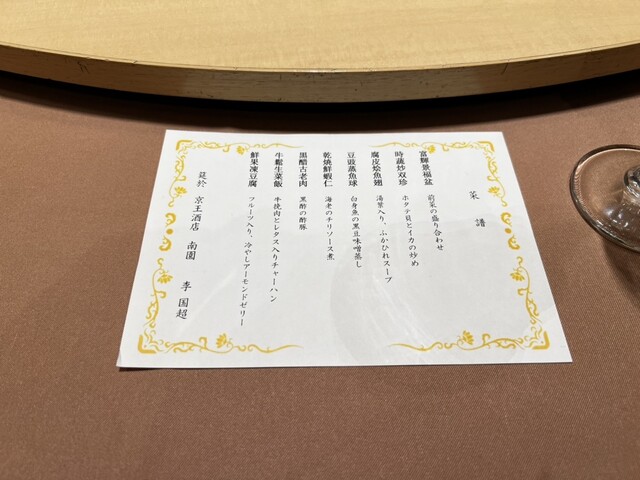 菜譜
富輝景福盆
前菜の盛り合わせ
時蔬炒双珍
ホタテ貝とイカの炒め
腐皮烩魚翅
湯葉入り、ふかひれスープ
豆豉蒸魚球
白身魚の黒豆味噌蒸し
乾焼鮮蝦仁
海老のチリソース煮
黒醋古老肉
黒酢の酢豚
牛鬆生菜飯
牛挽肉とレタス入りチャーハン
鮮果凍豆腐
フルーツ入り、冷やしアーモンドゼリー
筵於 京王酒店 南園 李 国超